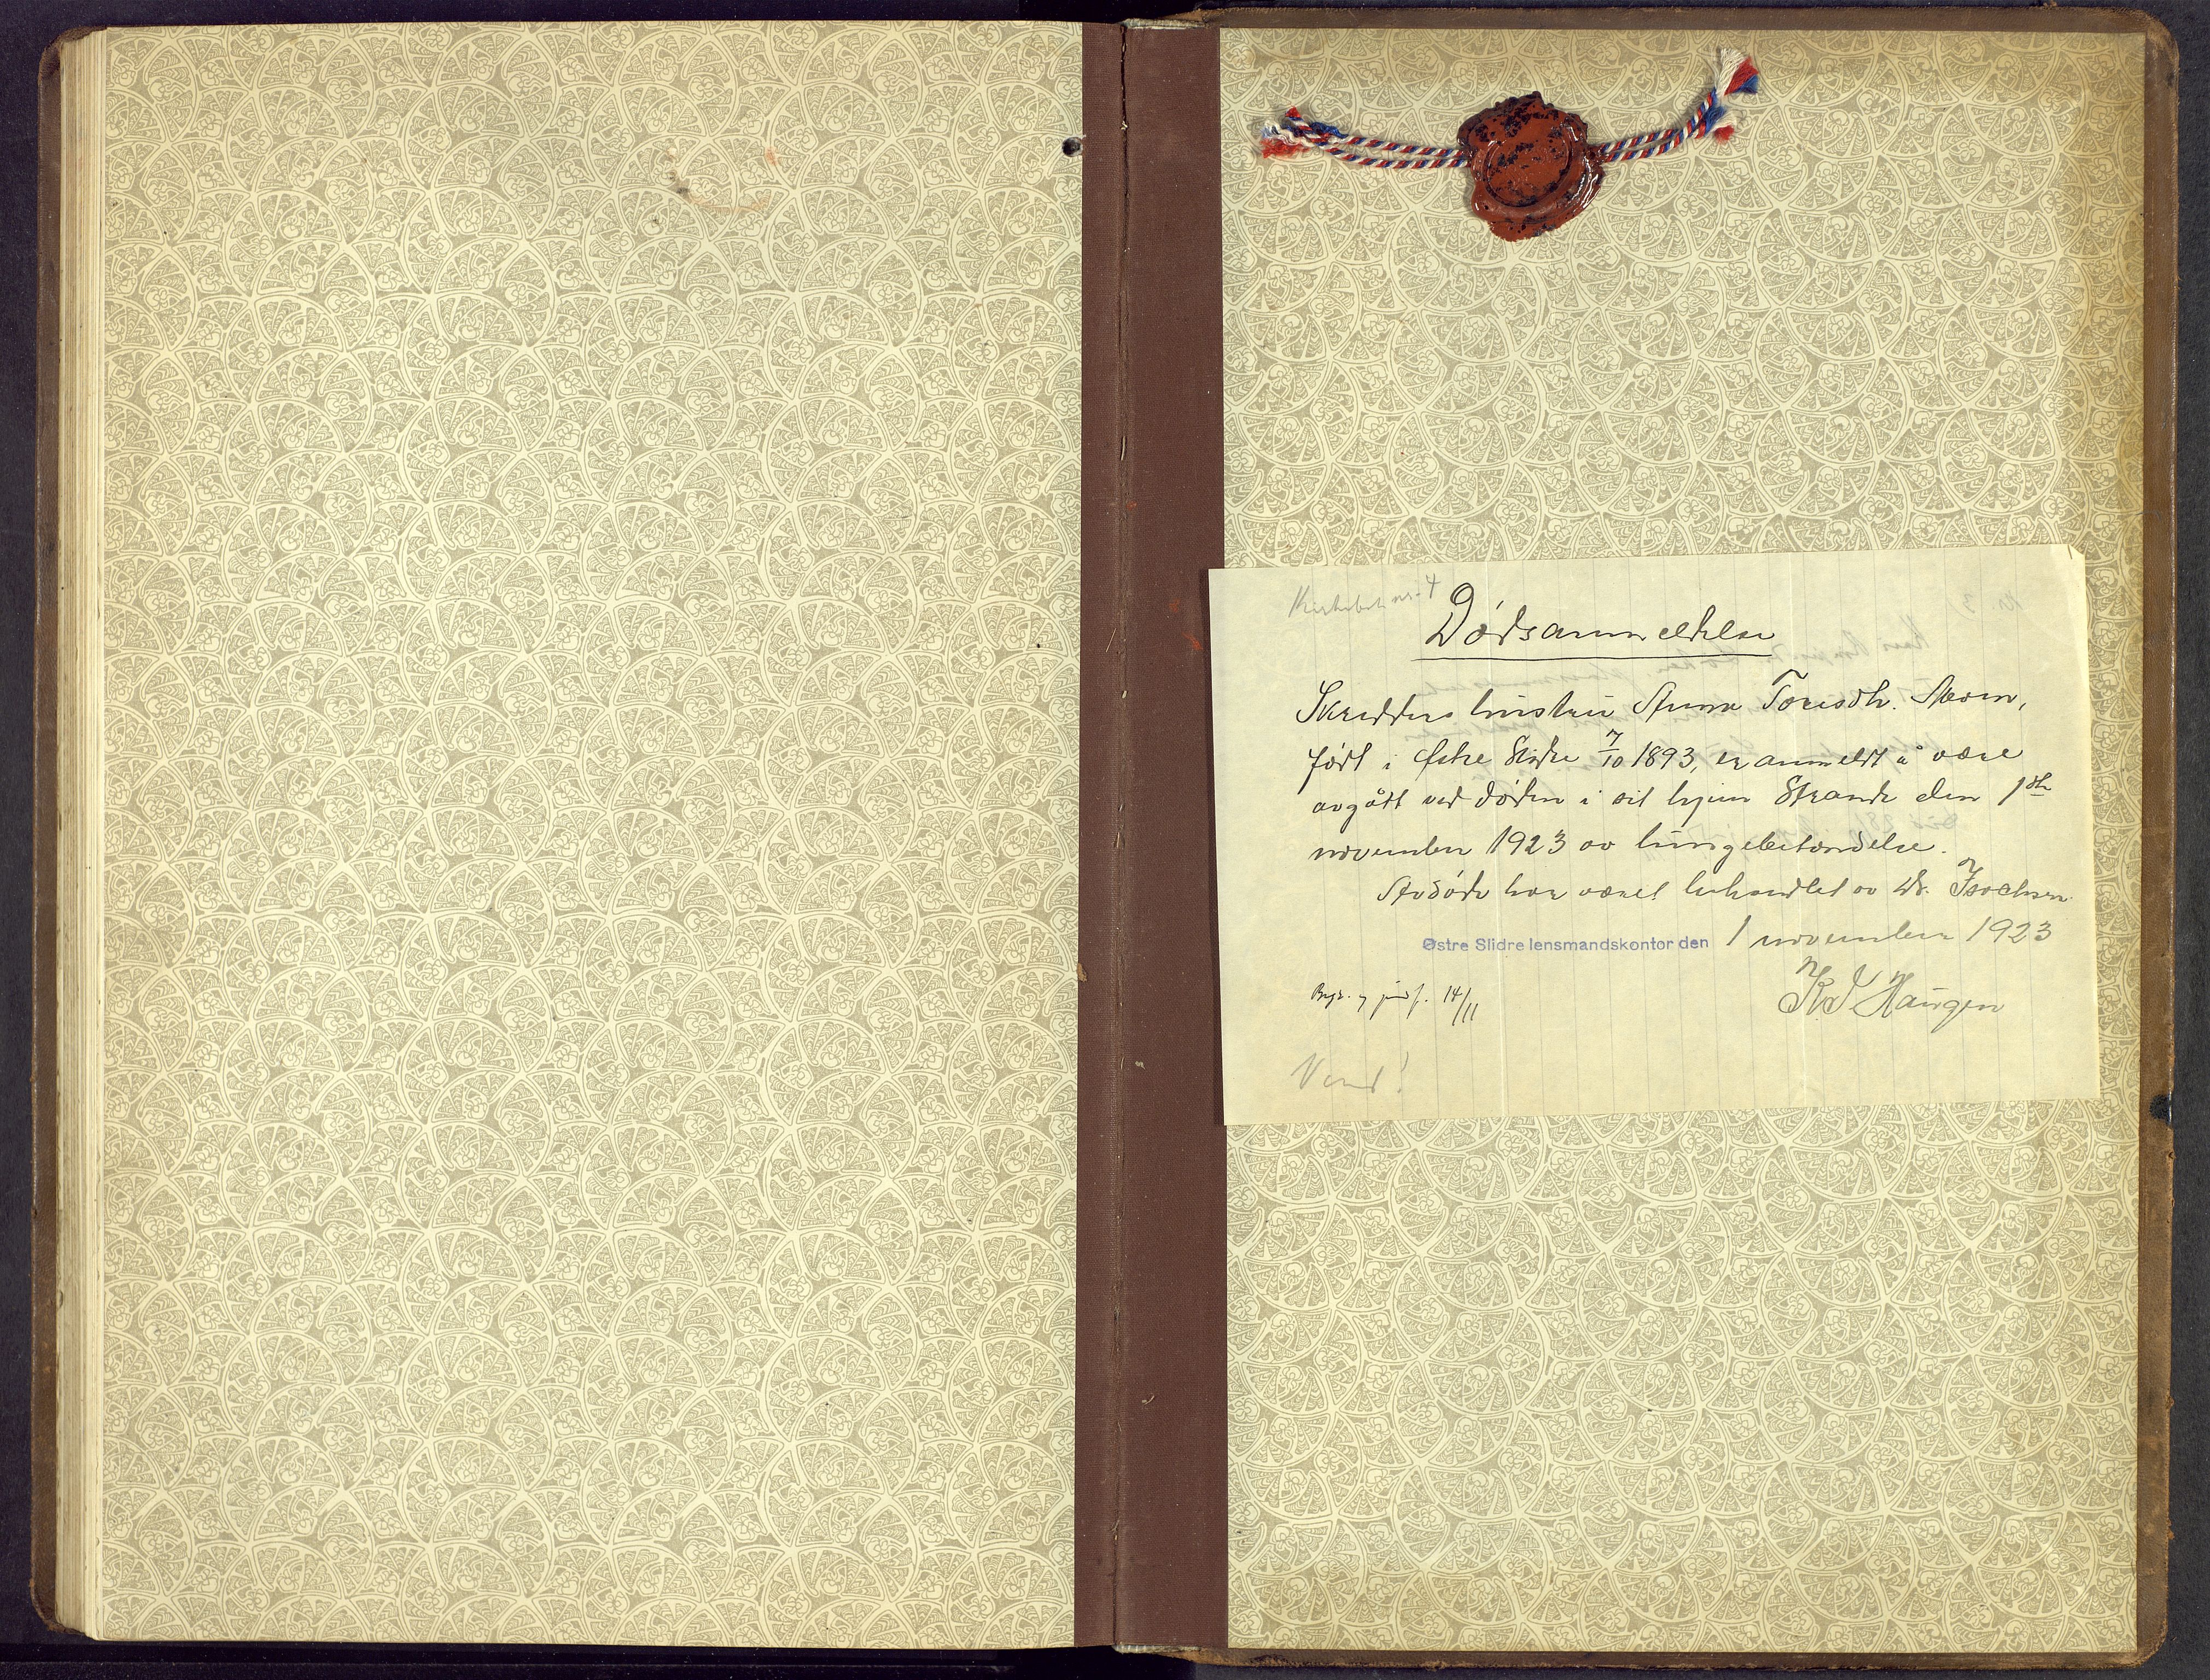 Kirkebok nr. 4
Dødsanmeldelse
Skredders hustru Anna Torisdtr. Moen,
født i Østre Slidre 7/10 1893, er anmeldt å være
avgått ved døden i sit hjem Strande den 1ste
november 1923 av lungebetændelse.
Avdøde har været behandlet av Dr. Isachsen.
Østre Slidre lensmandskontor den 1 november 1923
Haugen
Begr. og jordf. 14/11
Vend!